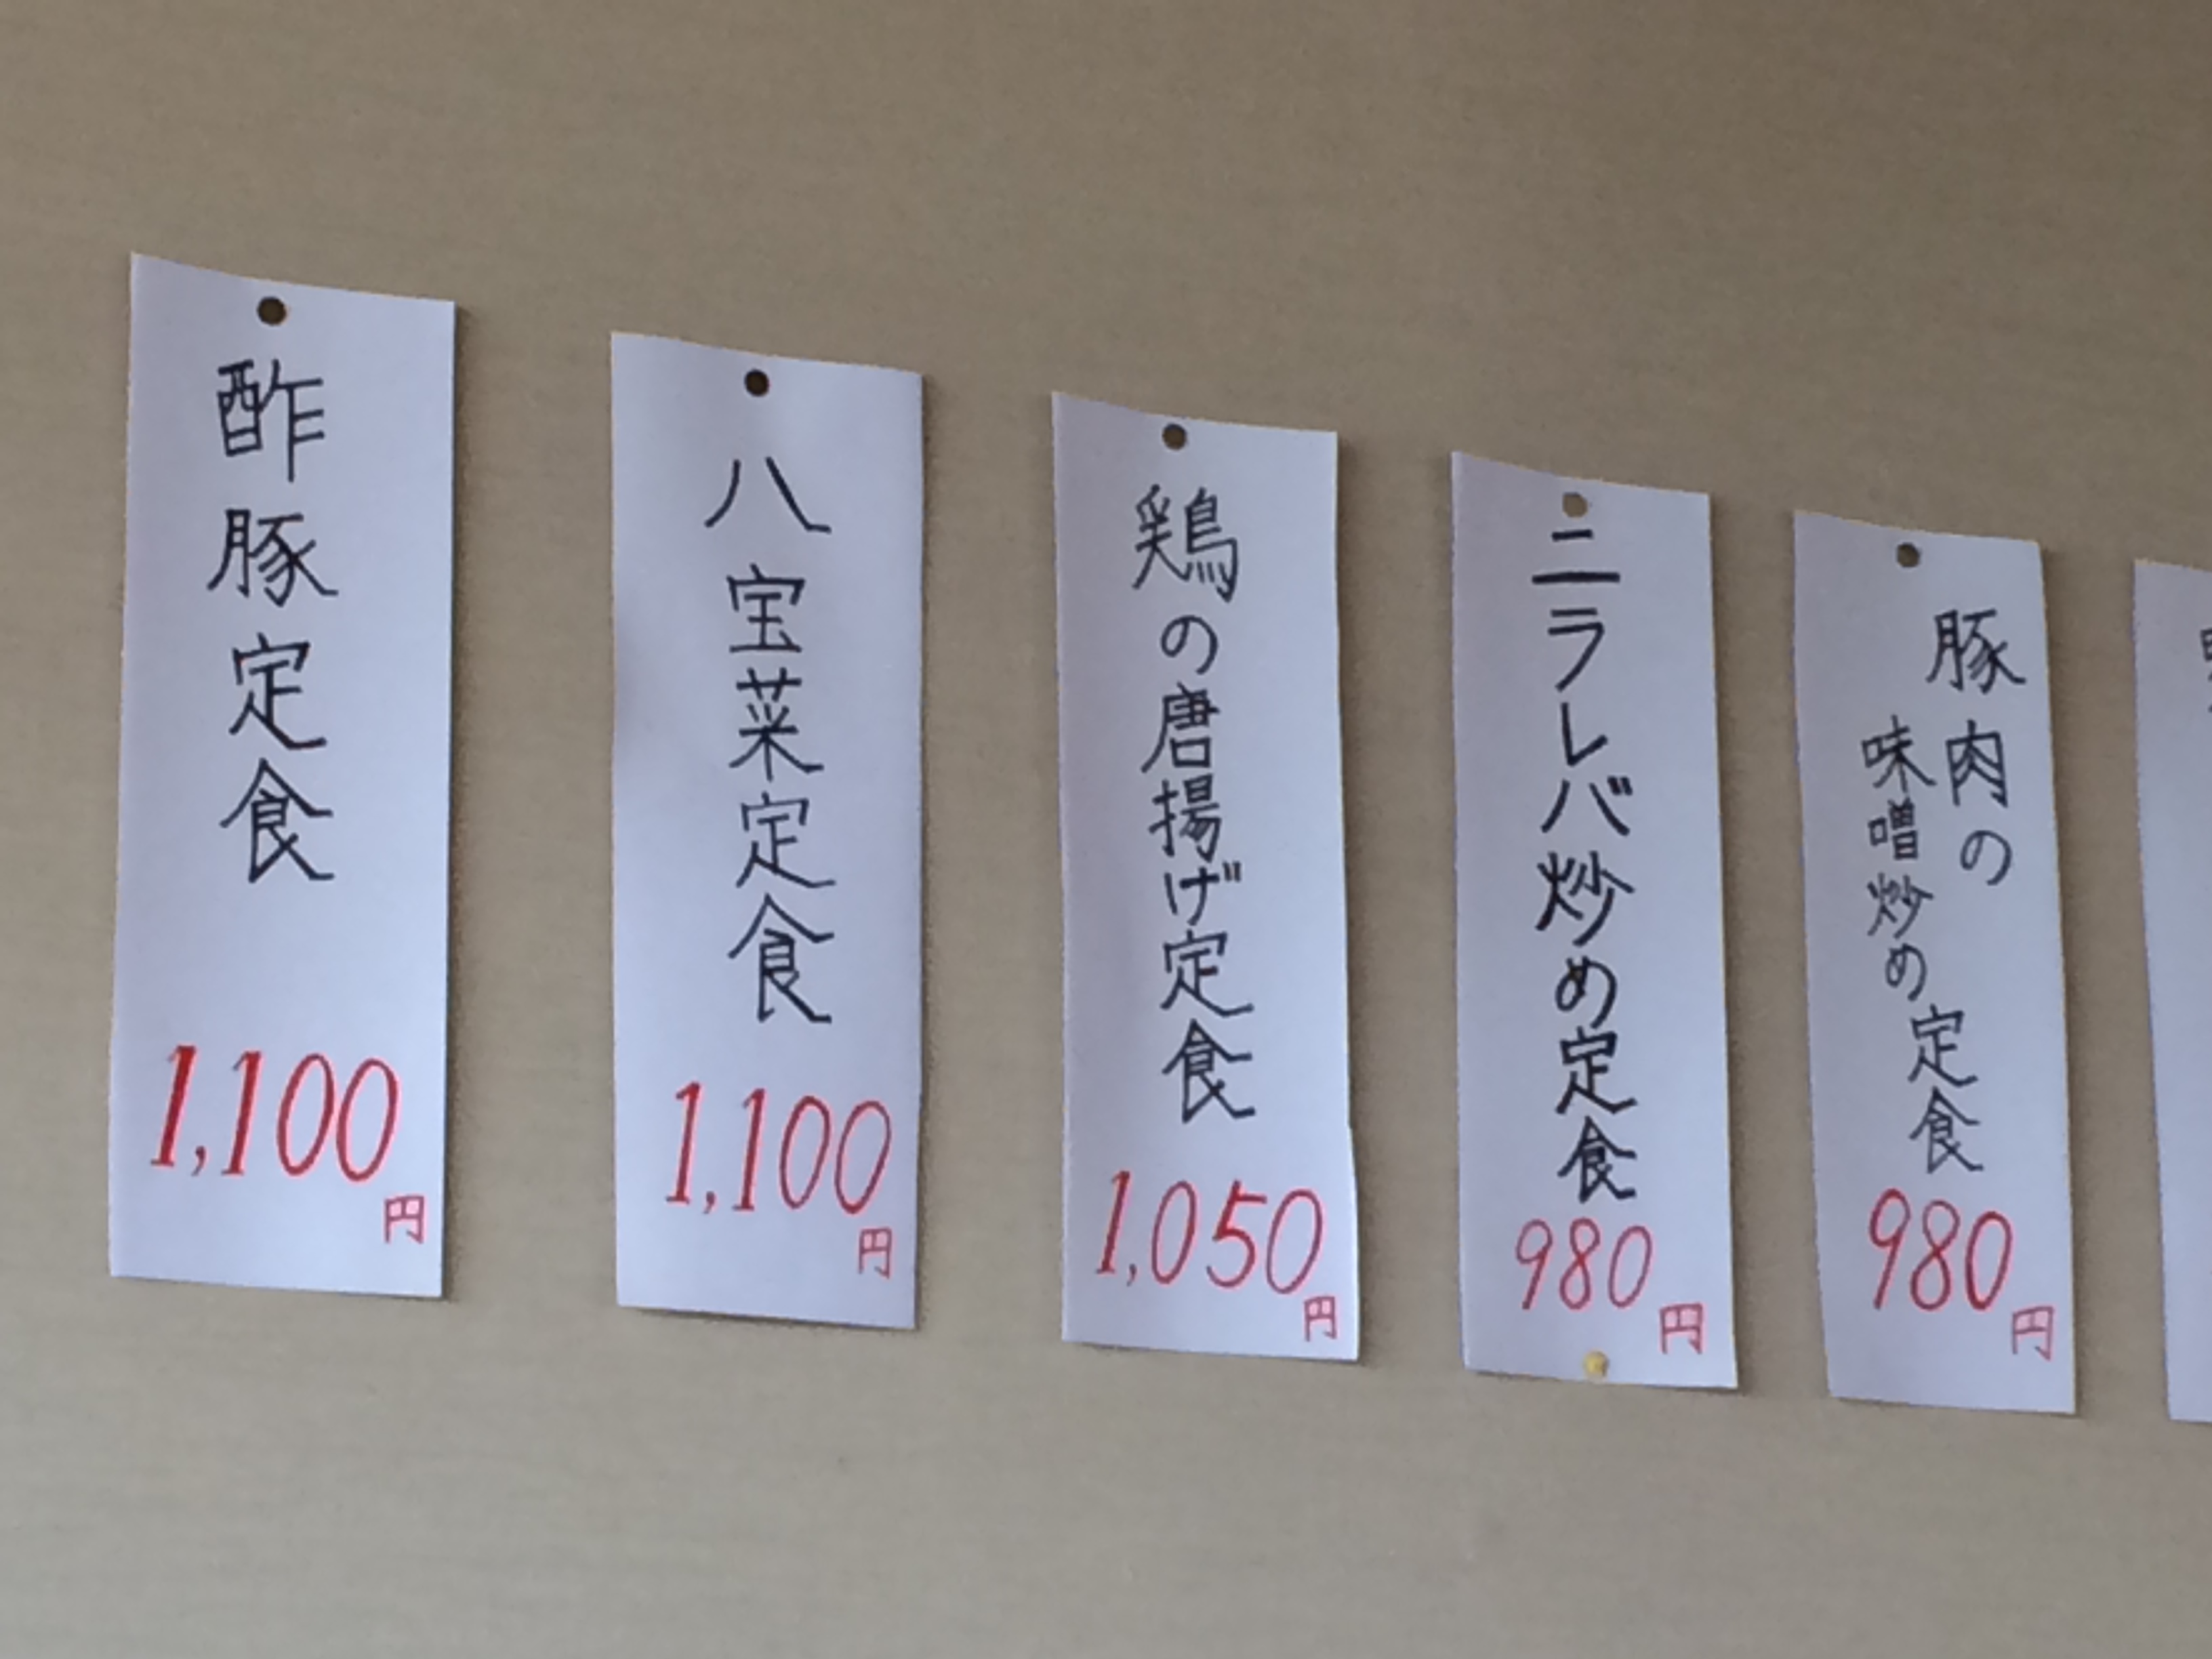 酢豚定食
1,100
円
八宝菜定食
1,100
円
鶏の唐揚げ定食
1,050
円
ニラレバ炒め定食
980
円
豚肉の
味噌炒め定食
980
円